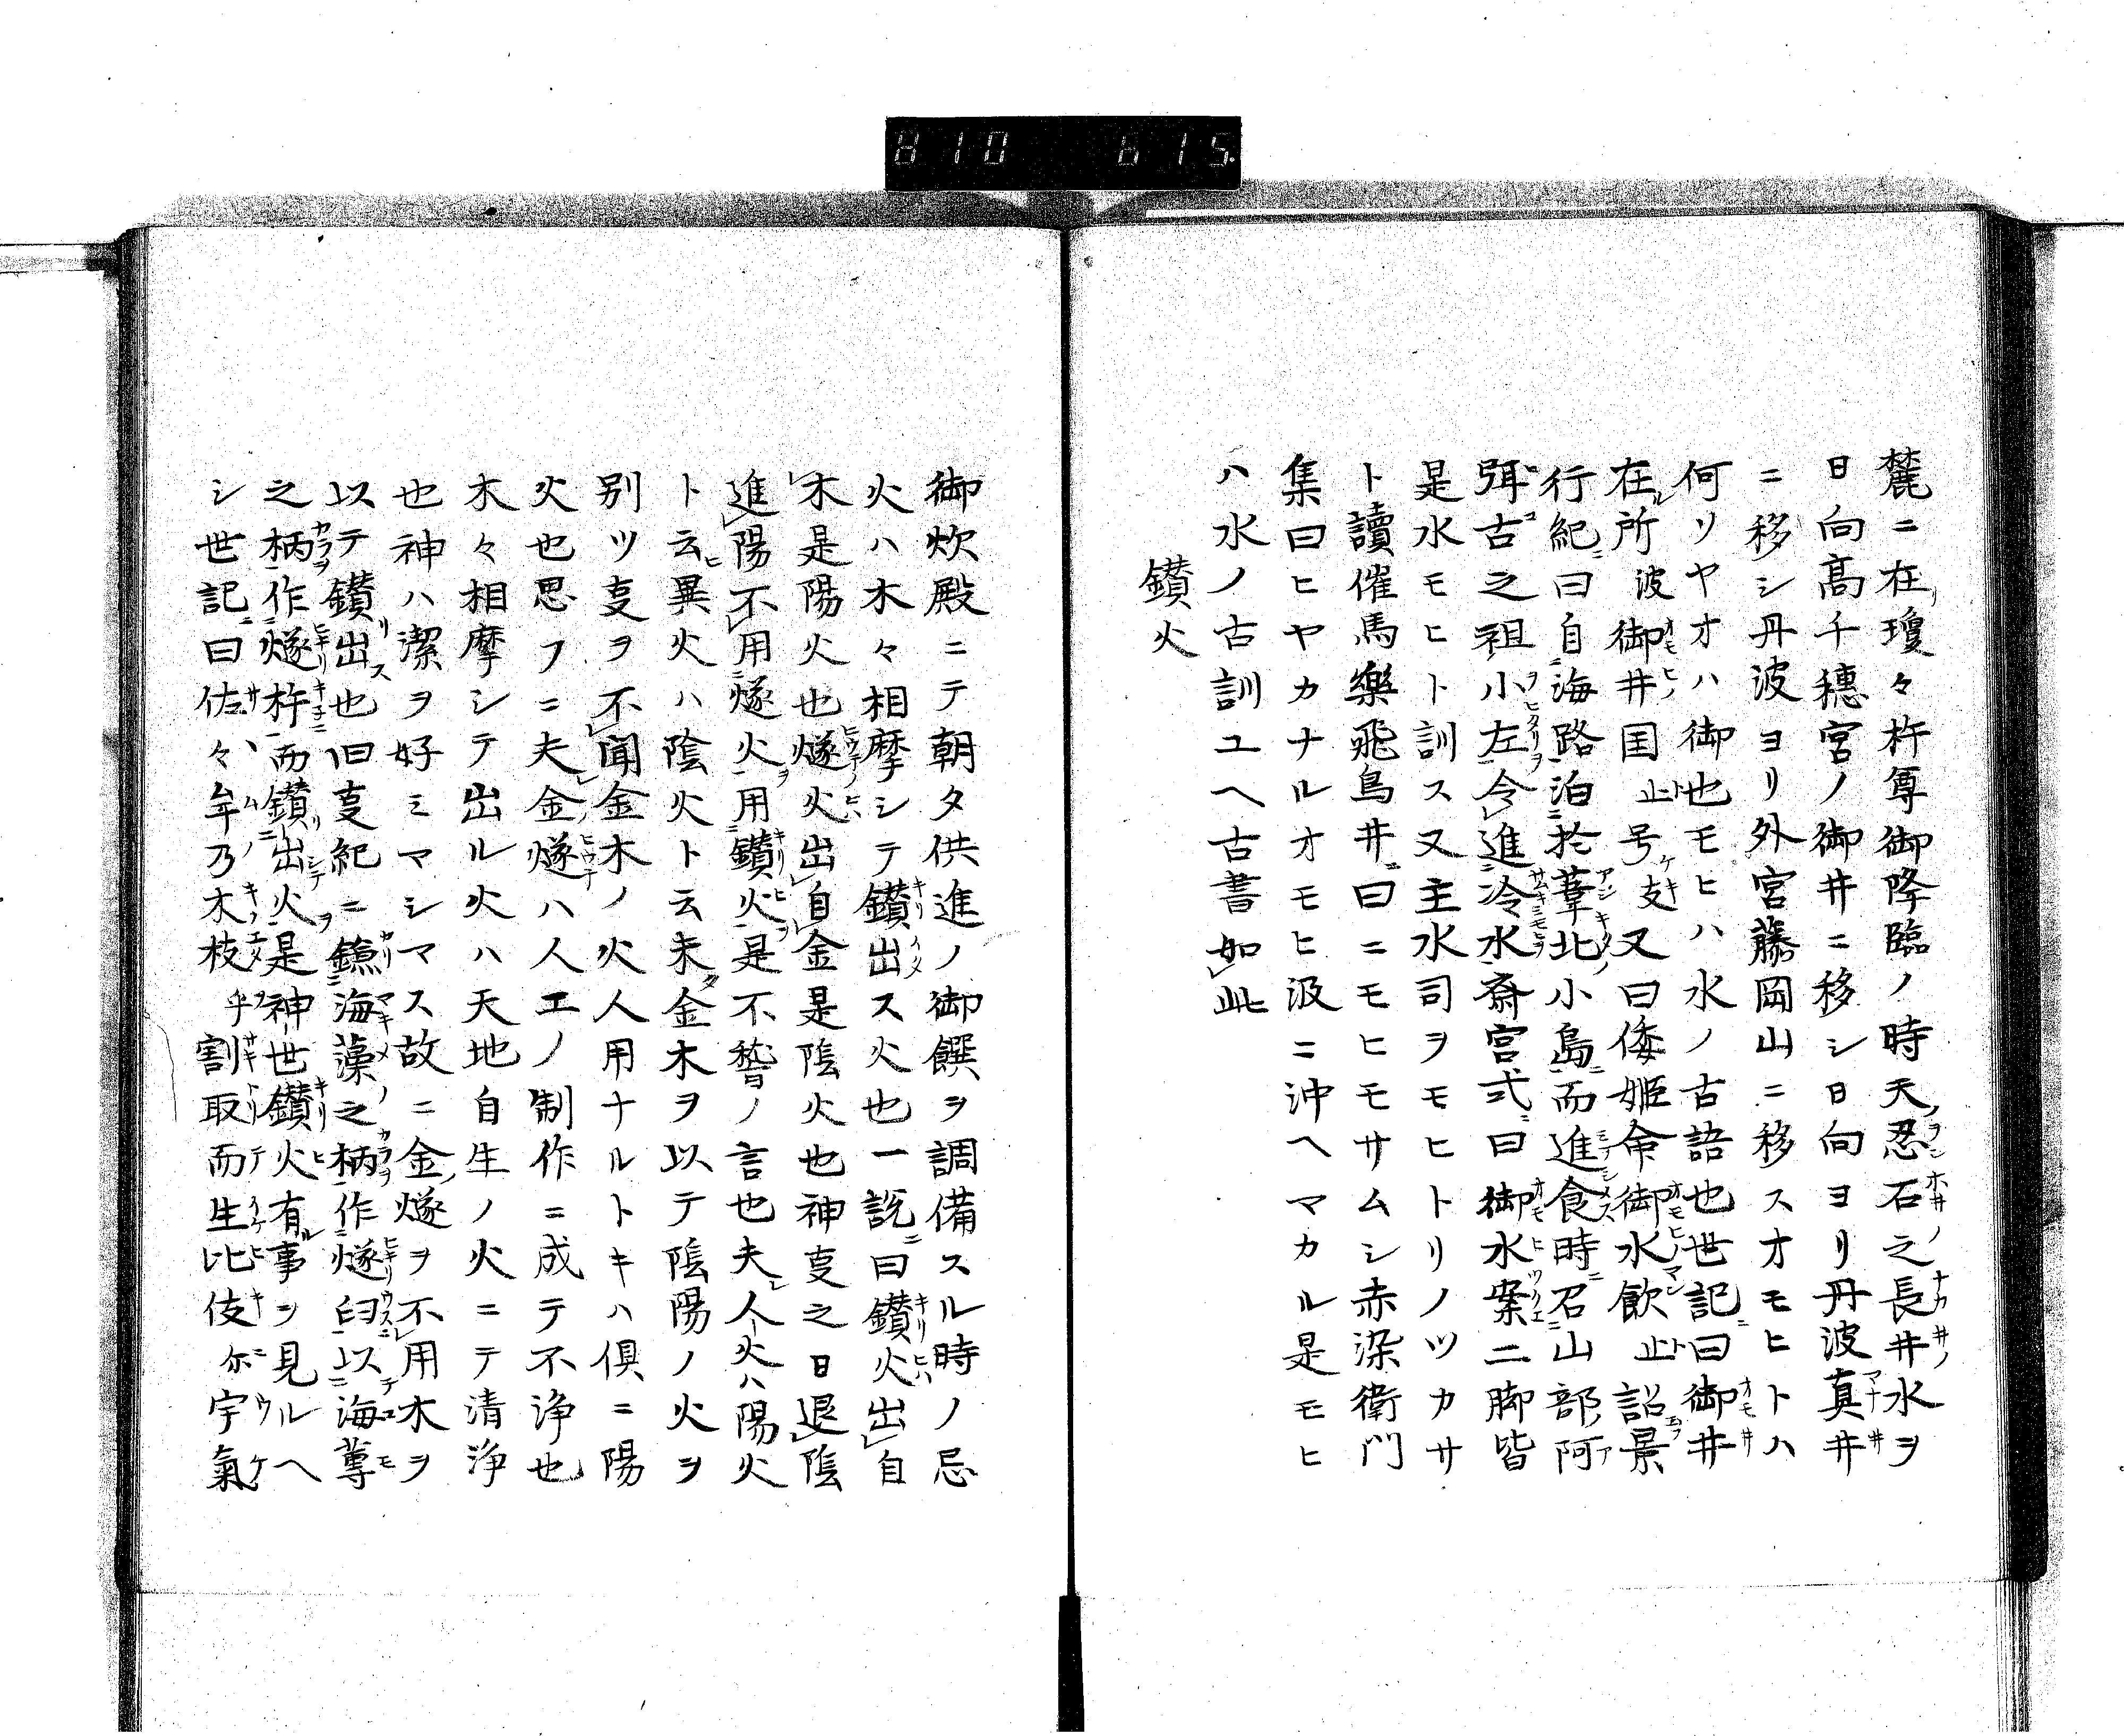 麓ニ在瓊々杵尊御降臨ノ時天忍石之長井水ヲ
日向髙千穗宮ノ御井ニ移シ日向ヨリ丹波真井
ニ移シ丹波ヨリ外宮藤岡山ニ移スオモヒトハ
何ソヤオハ御也モヒハ水ノ古語也世記曰御井
在所波御井国止号支又曰倭姫命御水飲止詔景
行紀曰自海路泊於葦北小島而進食時召山部阿
弭古之祖小左令進冷水斎宮式曰御水案二脚皆
是水モヒト訓ス又主水司ヲモヒトリノツカサ
ト讀催馬樂飛鳥井曰ニモヒモサムシ赤染衛門
集曰ヒヤカナルオモヒ汲ニ沖ヘマカル是モヒ
ハ水ノ古訓ユヘ古書如此
鑚火
御炊殿ニテ朝夕供進ノ御饌ヲ調備スル時ノ忌
火ハ木々相摩シテ鑚出ス火也一説曰鑚火出自
木是陽火也燧火出自金是陰火也神叓之日退陰
進陽不用燧火用鑚火是不稽ノ言也夫人火ハ陽火
ト云異火ハ陰火ト云未金木ヲ以テ陰陽ノ火ヲ
別ツ叓ヲ不聞金木ノ火人用ナルトキハ倶ニ陽
火也思フニ夫金燧ハ人工ノ制作ニ成テ不浄也
木々相摩シテ出ル火ハ天地自生ノ火ニテ清浄
也神ハ潔ヲ好ミマシマス故ニ金燧ヲ不用木ヲ
以テ鑚出也旧叓紀ニ鎌海藻之柄作燧臼以海蓴
之柄作燧杵而鑚出火是神世鑚火有事ヲ見ルヘ
シ世記曰佐々牟乃木枝乎割取而生比伎尓宇氣